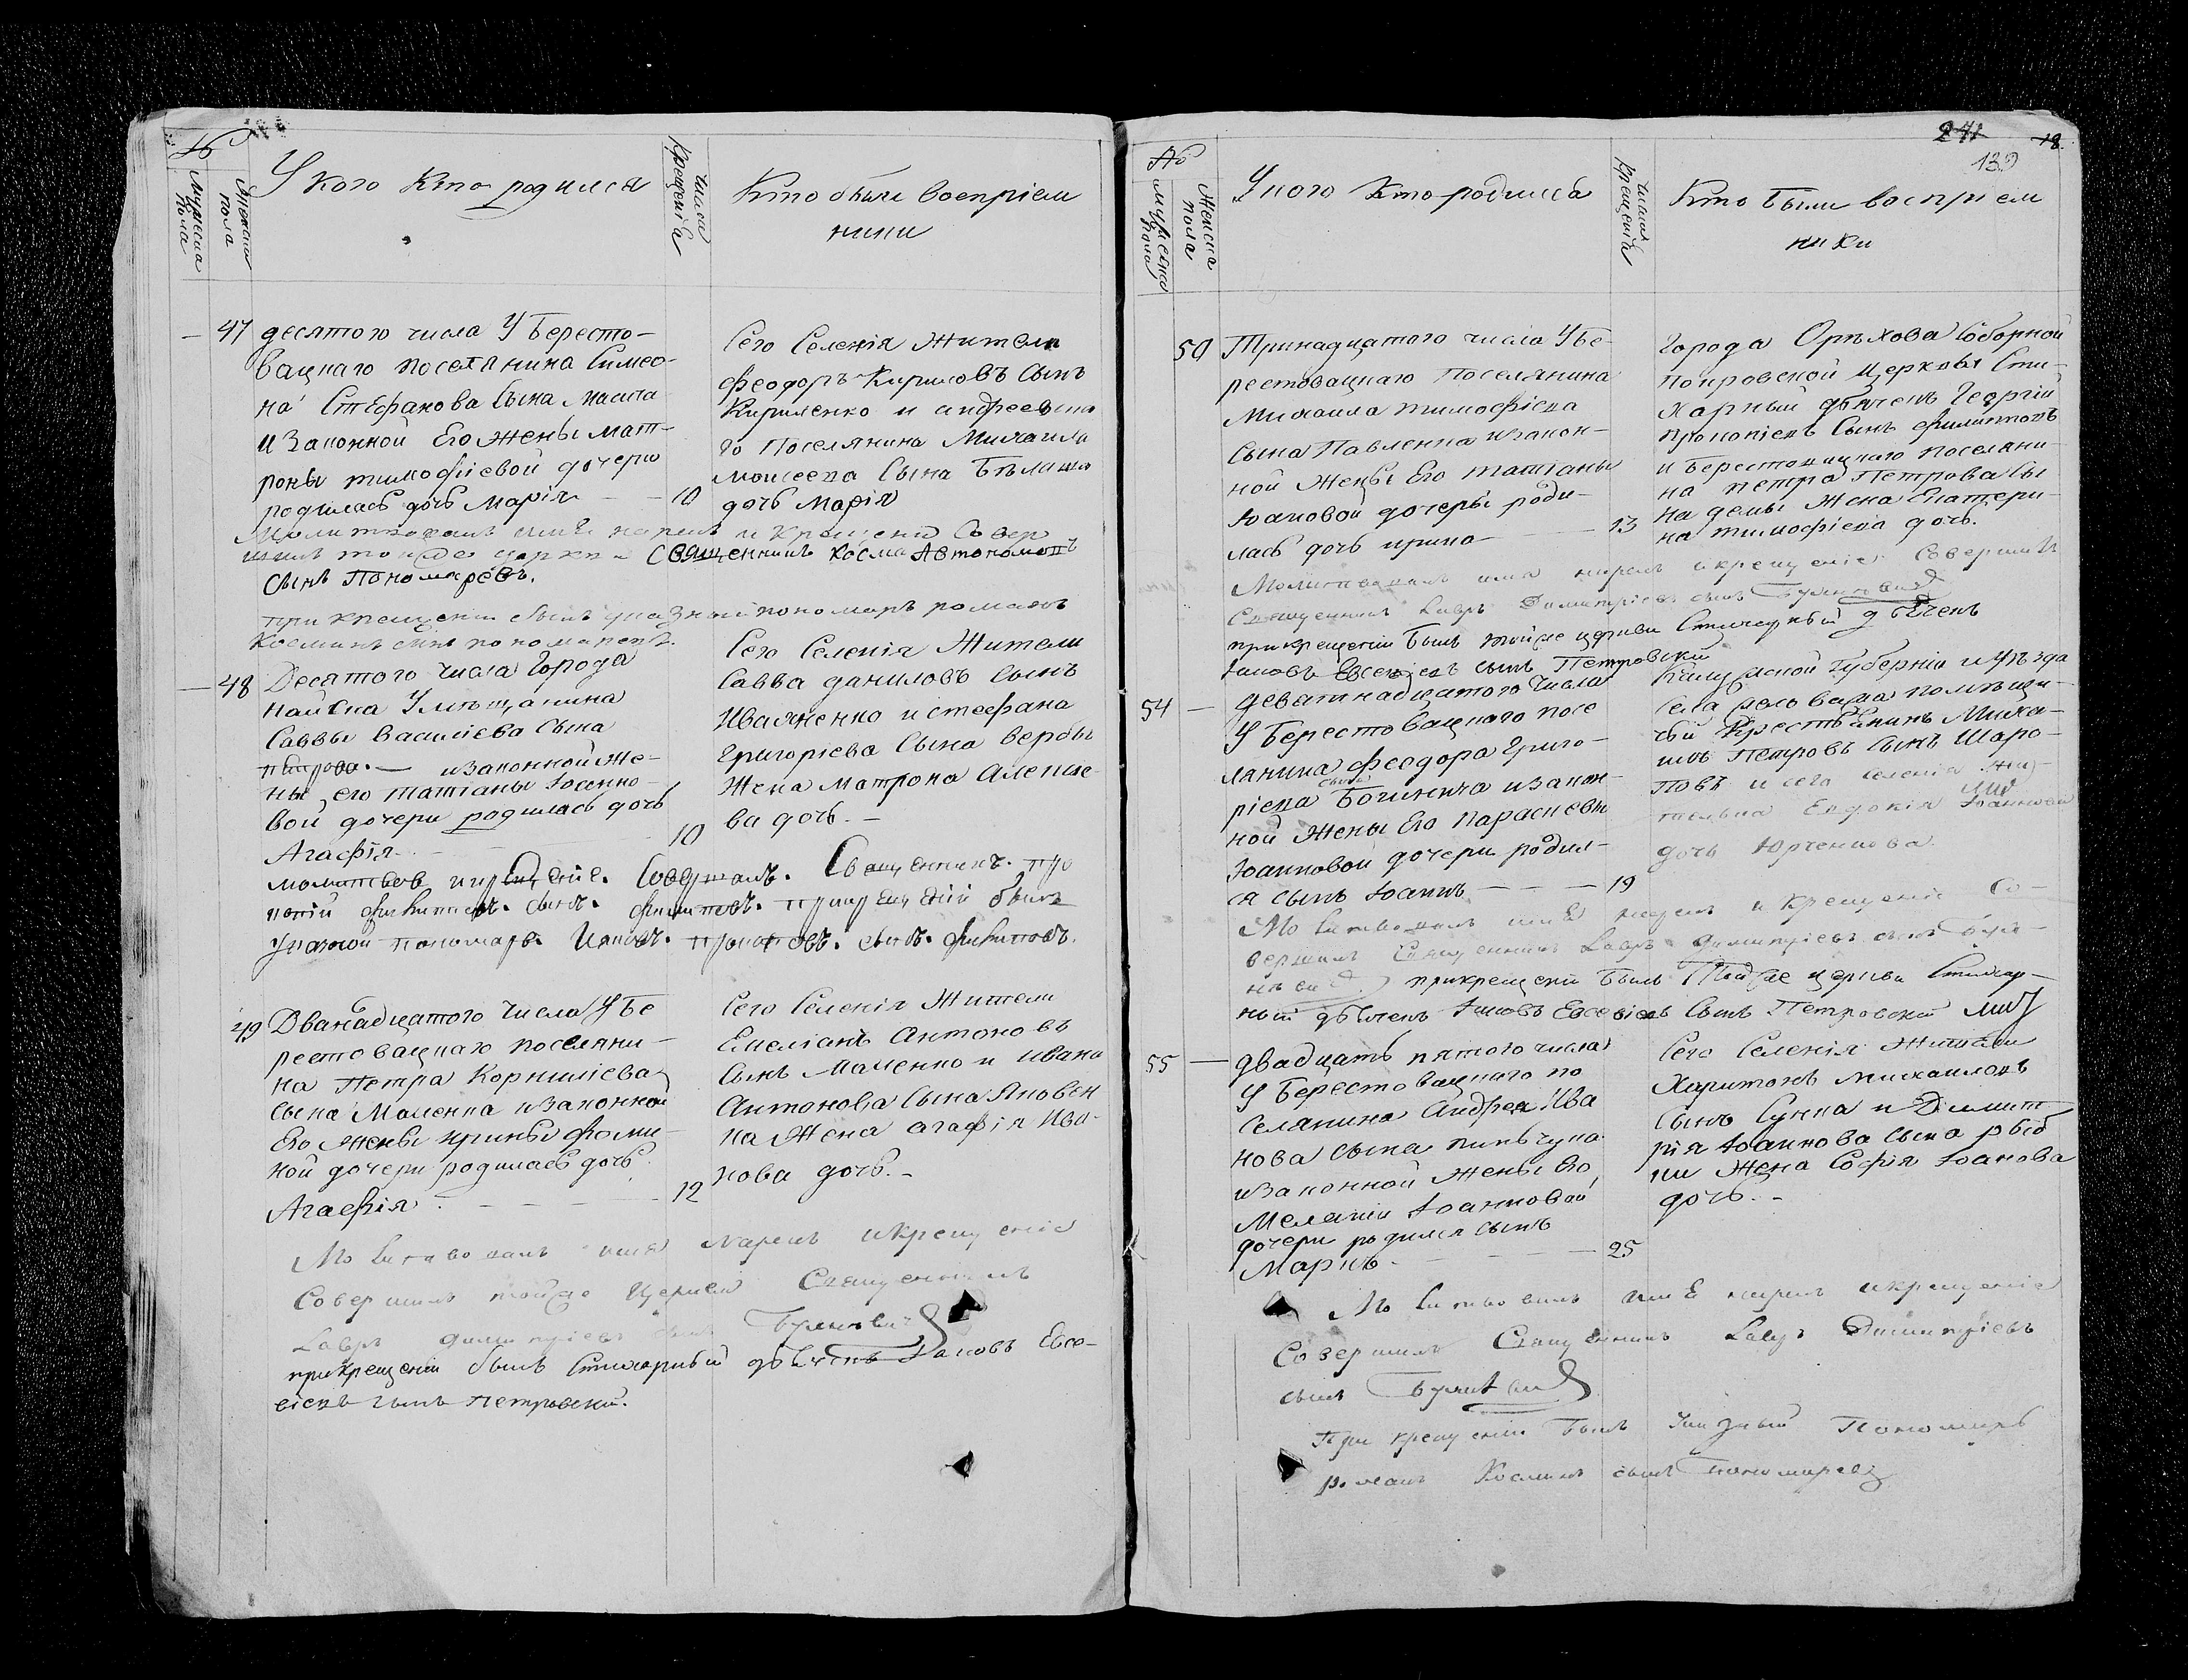 №
Мужеска пола
Женска пола
У кого кто родился
Числа Крещенія
Кто были воспріем
ники
47 десятого числа У Бересто-
вацкаго поселянина Симео-
на Стефанова Сына
и Законной Его жены мат-
роны тимофіевой дочери
родилась дочь Марія 10
Сего Селенія Жители
Феодоръ Кириловъ Сынъ
Кириленко и андреевска
го Поселянина Михаила
моисеева Сына
дочь Марія
имя нарекъ и Крещеніе Совер
шилъ тойже церкви Священникъ Косма Автономовъ
Сынъ Пономаревъ.
при крещеніи былъ указный пономарь романъ
Косминъ сынъ пономаревъ.
48 Десятого числа Города
У мѣщанина
Саввы василіева Сына
петрова. — и законной же-
ны его татіаны Іоанно-
вой дочери родилась дочь
Агафія 10
Сего Селенія Жители
Савва даниловъ Сынъ
Иваненко и стефана
Григоріева Сына вербы
Жена матрона Алексѣе-
ва дочь. -
молитвов и крещеніе. Совершалъ. Священникъ. про
копій сынъ. филиповъ. при крещеніи былъ
указной пономарь. Іаковъ. прокоповъ. сынъ. филиповъ.
49 Дванадцатого числа У Бе
рестовацкаго поселяни-
на Петра Корниліева
сына Маценка и законной
Его жены ирины фоми-
ной дочери родилась дочь
Агафія 12
Сего Селенія Жители
Емеліанъ Антоновъ
Сынъ Маценко и Ивана
Антонова Сына Яковен
ка Жена агафія Ива-
нова дочь. -
Молитвовалъ имя нарекъ и крещеніе
Совершилъ тойже Церкви Священникъ
Лавръ Димитріевъ сынъ
при крещеніи былъ Стихарный дьячекъ Іаковъ Евсе-
віевъ сынъ Петровскій.
241 18
139
№
мужеска пола
Женска пола
У кого Кто родился
Числа Крещенія
Кто были воспріем
ники
50 Тринадцатого числа У Бе-
рестовацкаго Поселянина
Михаила тимофіева
Сына Павленка и закон-
ной Жены Его татіаны
Іоановой дочеры роди-
лась дочь ирина 13
Города Орѣхова Соборной
покровской Церквы Сти-
харный дьячекъ Георгій
прокопіевъ Сынъ филиповъ
и Берестовацкаго поселяни-
на петра Петрова Сы
на Жена Екатери-
на тимофіева дочь.
Молитвовалъ имя нарекъ и крещеніе Совершилъ
Священникъ Лавръ Димитріевъ сынъ
при крещеніи былъ тойже церкви Стихарный дьячекъ
Іаковъ Евсевіевъ сынъ Петровскій
54 девятнадцатого числа
У Берестовацкаго посе
лянина Феодора Григо-
ріева сына и закон-
ной Жены Его Параскевы
Іоанновой дочери родил-
ся сынъ Іоаннъ 19
Губерніи и Уѣзда
Села помѣщи-
чій Крестьянинъ Миха-
илъ Петровъ Сынъ Шаро-
повъ и сего селенія жи-
тельна Евдокія Іоаннова
дочь Юрченкова.
Молитвовалъ имя нарекъ и крещеніе Со-
вершилъ Священникъ Лавръ Димитріевъ сынъ
при крещеніи былъ Тойже церкви Стихар-
ный дьячекъ Іаковъ Евсевіевъ Сынъ Петровскій
55 двадцать пятого числа
У Берестовацкаго по
селянина Андрея Ива
нова сына пинчука
и законной жены Его
Меланіи Іоанновой
дочери родился сынъ
Маркъ 25
Сего Селенія Жители
Харитонъ михаиловъ
Сынъ Сучка и Димит
рія Іоаннова сына рыб
ки Жена Софія Іоанова
дочь. -
Молитвовалъ имя нарекъ и крещеніе
Совершилъ Священникъ Лавръ Димитріевъ
сынъ
При крещеніи былъ Указный Пономарь
романъ Косминъ сынъ Пономаревъ